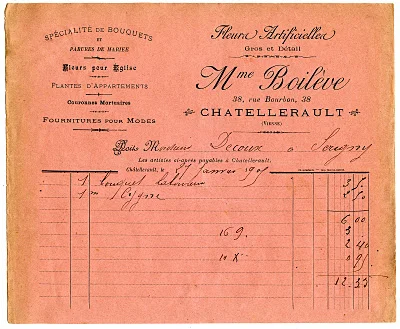 SPÉCIALITÉ DE BOUQUETS
ET
PARURES DE MARIÉE
Fleurs pour Église
PLANTES D'APPARTEMENTS
Couronnes Mortuaires
FOURNITURES POUR MODES
Fleurs Artificielles
Gros et Détail
Mme Boilève
38, rue Bourbon, 38
CHATELLERAULT
(VIENNE)
Doit Decoux à Serigny
Les articles ci-après payables à Châtellerault.
Châtellerault, le Janvier
1 bouquet 3 50
1 m 2 50
6 00
169 3
2 40
10 X 0 95
12 35